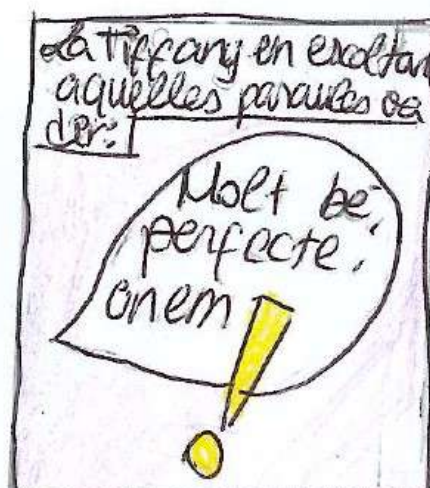 La Tiffany en escoltar
aquelles paraules va
dir:
Molt bé,
perfecte,
anem!